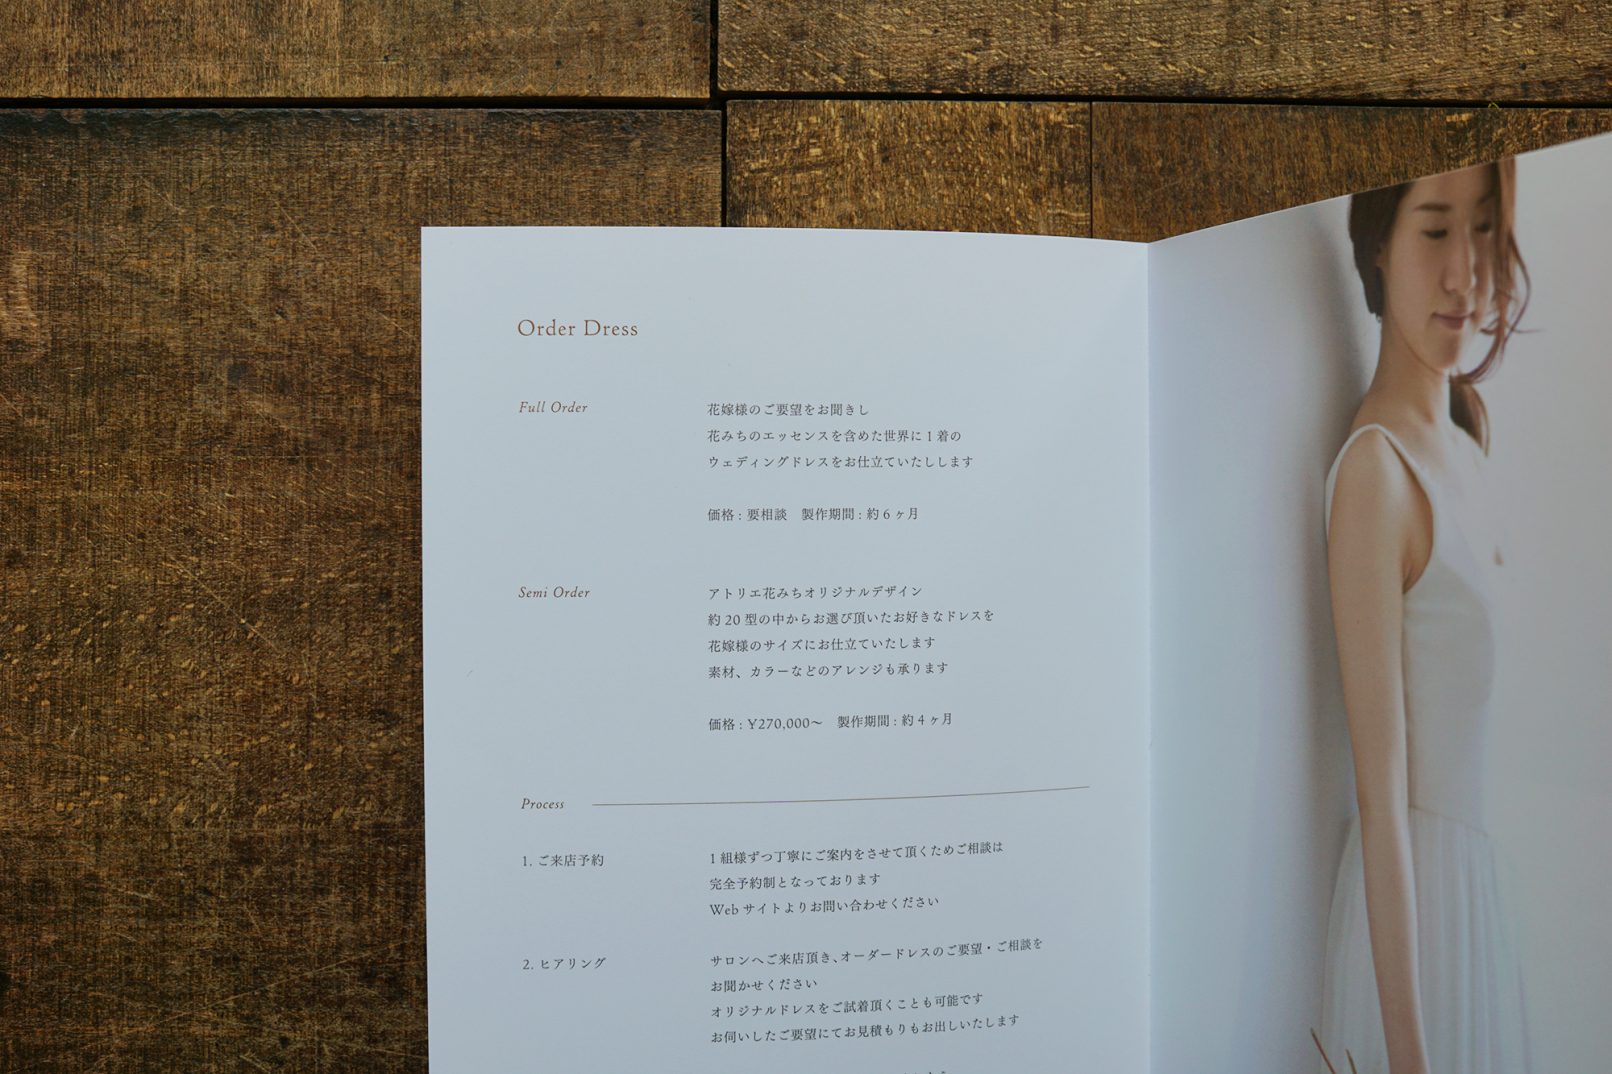 Order Dress
Full Order
花嫁様のご要望をお聞きし
花みちのエッセンスを含めた世界に 1 着の
ウェディングドレスをお仕立ていたしします
価格 : 要相談　製作期間 : 約 6 ヶ月
Semi Order
アトリエ花みちオリジナルデザイン
約 20 型の中からお選び頂いたお好きなドレスを
花嫁様のサイズにお仕立ていたします
素材、カラーなどのアレンジも承ります
価格 : ¥270,000〜　製作期間 : 約 4 ヶ月
Process
1. ご来店予約
1 組様ずつ丁寧にご案内をさせて頂くためご相談は
完全予約制となっております
Web サイトよりお問い合わせください
2. ヒアリング
サロンへご来店頂き、オーダードレスのご要望・ご相談を
お聞かせください
オリジナルドレスをご試着頂くことも可能です
お伺いしたご要望にてお見積もりもお出しいたします